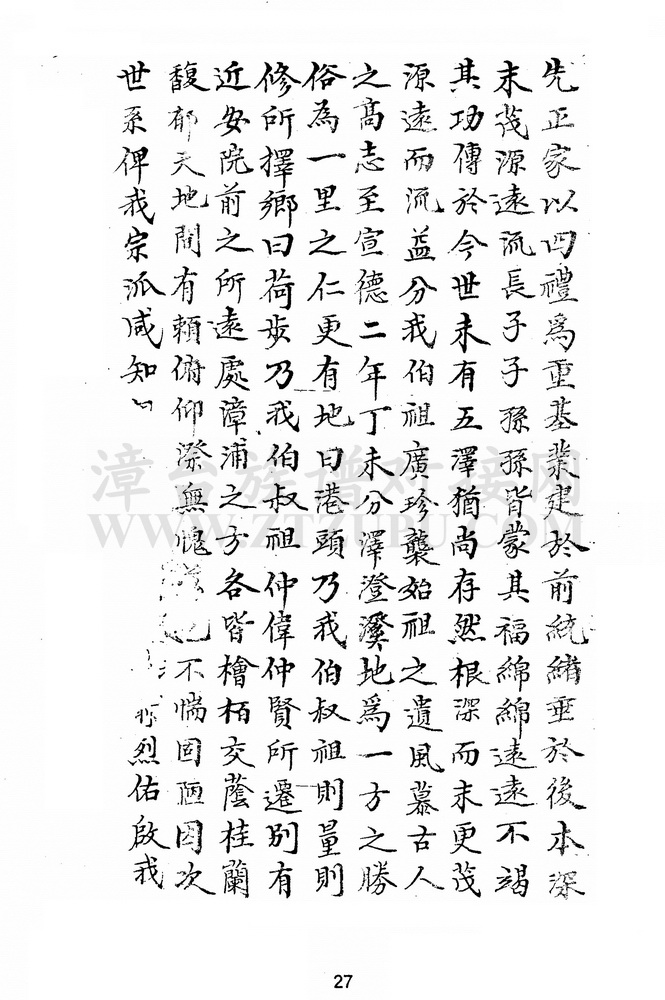 先正家以四禮為重基業建於前統緒垂於後本深
末茂源遠流長子子孫孫皆蒙其福綿綿遠遠不竭
其功傳於今世未有五澤猶尚存然根深而末更茂
源遠而流益分我伯祖廣珍襲始祖之遺風慕古人
之高志至宣德二年丁未分澤澄溪地為一方之勝
俗為一里之仁更有地曰港頭乃我伯叔祖則量則
修所擇鄉曰荷步乃我伯叔祖仲偉仲賢所遷別有
近安院前之所遠處漳浦之方各皆檜栢交蔭桂蘭
馥郁天地間有賴俯仰際無愧不惴固陋因次
世系俾我宗派咸知烈佑啟我
漳台族谱对接网
WWW.ZTZUPU.COM
27